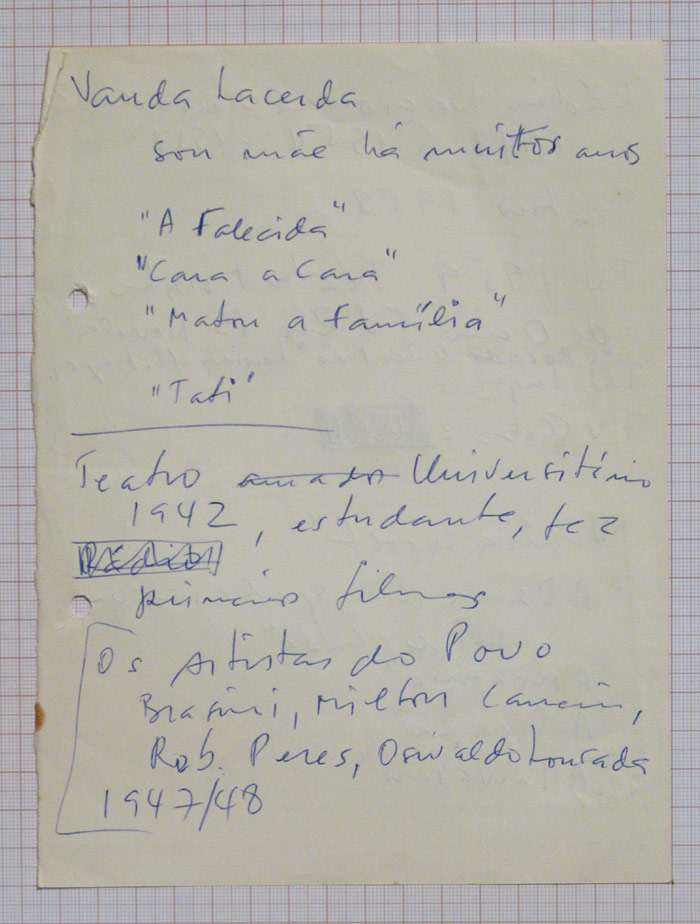 Vanda Lacerda
sou mãe há muitos anos
"A Falecida"
"Cara a Cara"
"Matou a família"
"Tati"
Teatro amador Universitário
1942, estudante, fez
Rádio
primeiros filmes
Os Artistas do Povo
Brasini, Milton Carneiro,
Rob. Peres, Oswaldo Lousada
1947/48